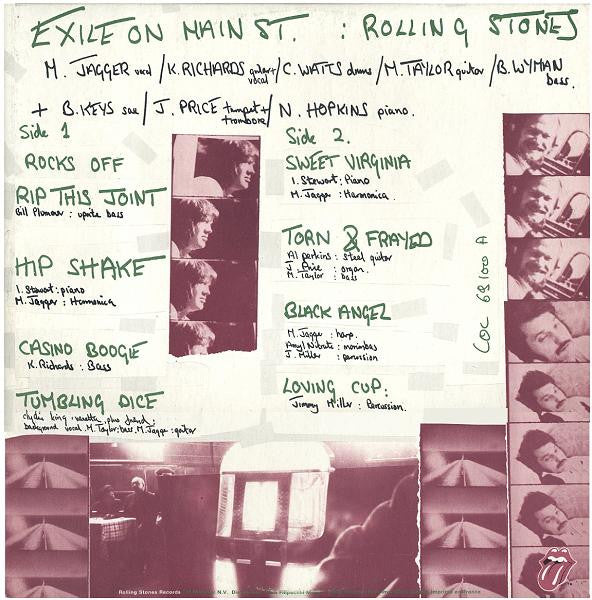 EXILE ON MAIN ST. : ROLLING STONES
M. JAGGER vocl / K. RICHARDS guitar + vocal / C. WATTS drums / M. TAYLOR guitar / B. WYMAN bass.
+ B. KEYS sax / J. PRICE trumpet + trombone / N. HOPKINS piano.
Side 1
ROCKS OFF
RIP THIS JOINT
Bill Plummer : uprite bass
HIP SHAKE
I. Stewart : piano
M. Jagger : Harmonica
CASINO BOOGIE
K. Richards : Bass
TUMBLING DICE
clydie king . vanetta . plus friend .
background vocal . M. Taylor : bass . M. Jagger : guitar
Side 2.
SWEET VIRGINIA
I. Stewart : Piano
M. Jagger : Harmonica.
TORN & FRAYED
Al perkins : steel guitar
J. Price : organ.
M. Taylor : bass
BLACK ANGEL
M. Jagger : harp.
Amyl Nitrate : marimbas
J. Miller : percussion
LOVING CUP :
Jimmy Miller : Percussion.
COC 69100 A
Rolling Stones Records